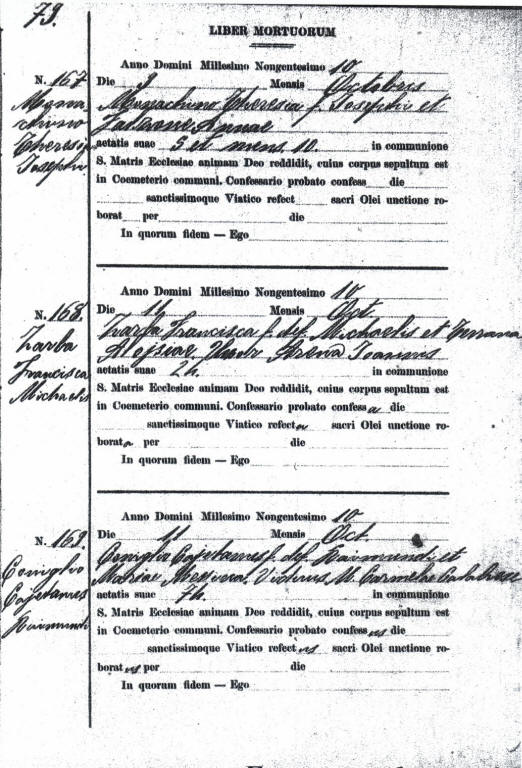 79.
LIBER MORTUORUM
Anno Domini Millesimo Nongentesimo 10
N. 167 Die 9 Mensis Octobris
Theresia f. Josephi et
Annae
Theresia
Josephi
aetatis suae 5 et mens. 10 in communione
S. Matris Ecclesiae animam Deo reddidit, cuius corpus sepultum est
in Coemeterio communi. Confessario probato confess die
sanctissimoque Viatico refect sacri Olei unctione ro-
borat per die
In quorum fidem — Ego
Anno Domini Millesimo Nongentesimo 10
N. 168 Die 11 Mensis Oct.
Zarba Zarba Francisca f. def. Michaelis et
Francisca Aloysiae, Uxor Arena Joannis
Michaelis aetatis suae in communione
S. Matris Ecclesiae animam Deo reddidit, cuius corpus sepultum est
in Coemeterio communi. Confessario probato confessa die
sanctissimoque Viatico refecta sacri Olei unctione ro-
borata per die
In quorum fidem — Ego
Anno Domini Millesimo Nongentesimo 10
N. 169. Die 11 Mensis Oct.
Coniglio Coniglio Cajetanus f. def. Raimundi et
Cajetanus Mariae Messina. Viduus M. Carmelae
Raimundi aetatis suae 74. in communione
S. Matris Ecclesiae animam Deo reddidit, cuius corpus sepultum est
in Coemeterio communi. Confessario probato confessus die
sanctissimoque Viatico refectus sacri Olei unctione ro-
boratus per die
In quorum fidem — Ego